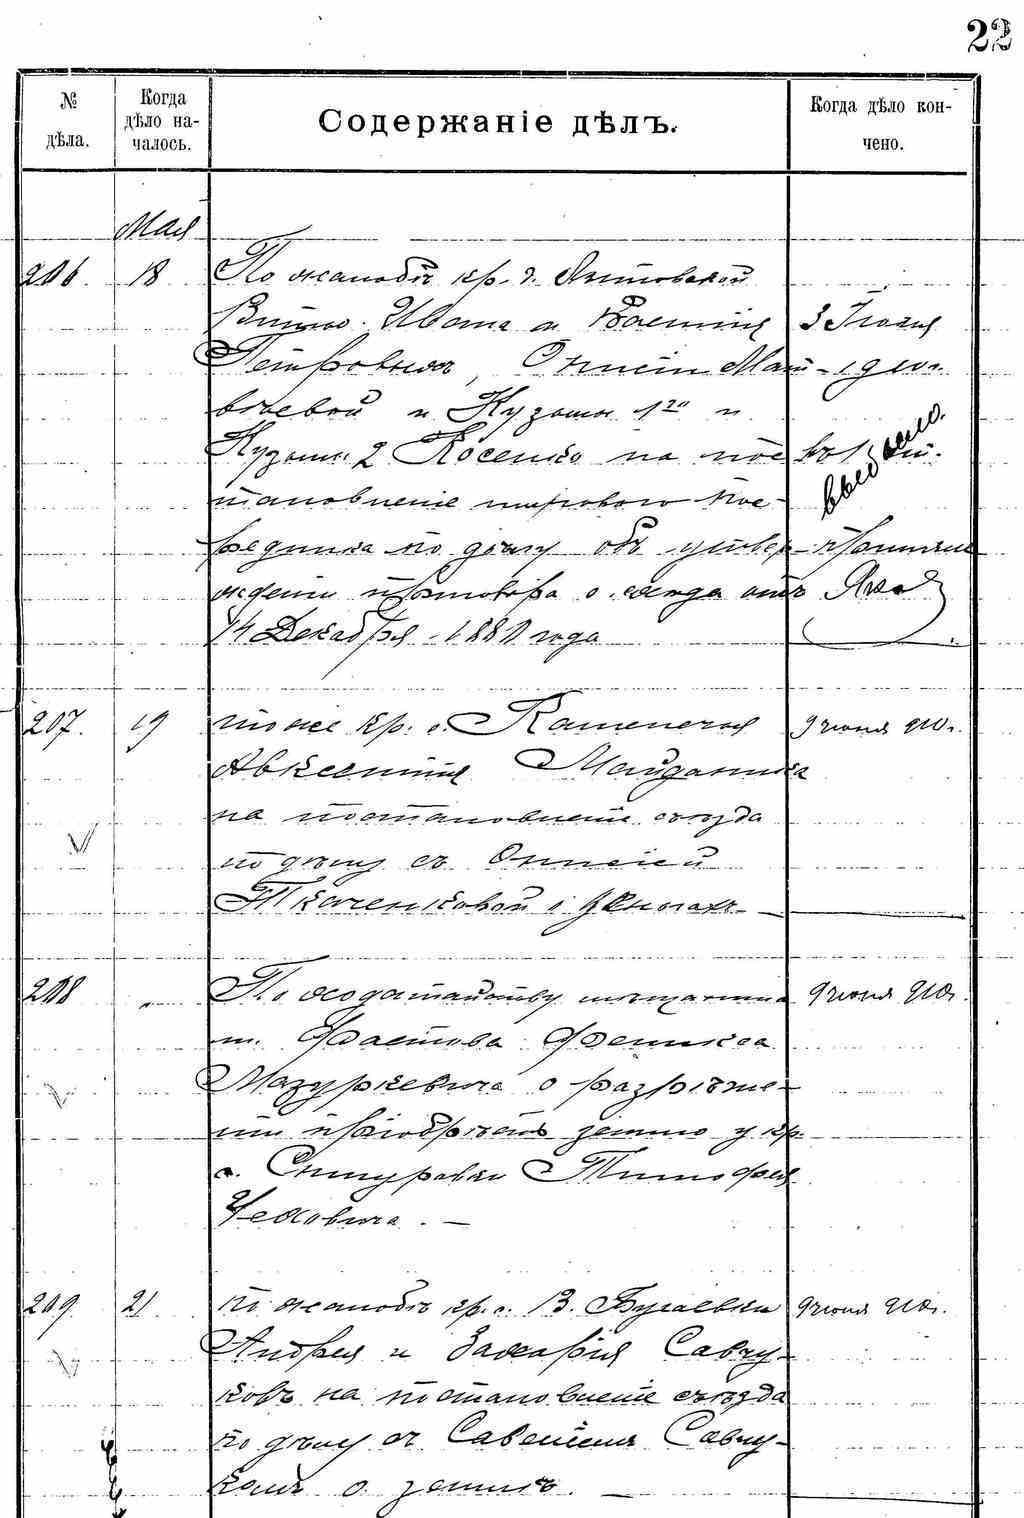 22
№ дѣла.
Когда дѣло началось.
Содержаніе дѣлъ.
Когда дѣло кончено.
Мая
206 18 По жалобѣ кр. д.
Ивана и
Петровыхъ, Онисіи Мат-
вѣевой и Кузьмы 1го и
Кузьмы 2 Косенко на пос-
тановленіе мироваго пос-
редника по дѣлу объ утвер-
жденіи приговора о отъ
14 Декабря 188 года
3 Іюля
910 г.
207. 19 тоже кр. с. Каменечья
Авксентія Майданика
на постановленіе съѣзда
по дѣлу съ Онисіей
Ткаченковой о
9 іюня 910 г.
208 „ По ходатайству мѣщанина
м. Фастова Феликса
Мазуркевича о разрѣше-
ніи пріобрѣсть землю у кр.
с. Снитуровки Тимофея
Чеховича. —
9 іюня 910 г.
209. 21 по жалобѣ кр. с. В. Бугаевки
Андрея и Захарія Савчу-
ковъ на постановленіе съѣзда
по дѣлу съ Савчу-
комъ о землѣ. —
9 іюня 910 г.